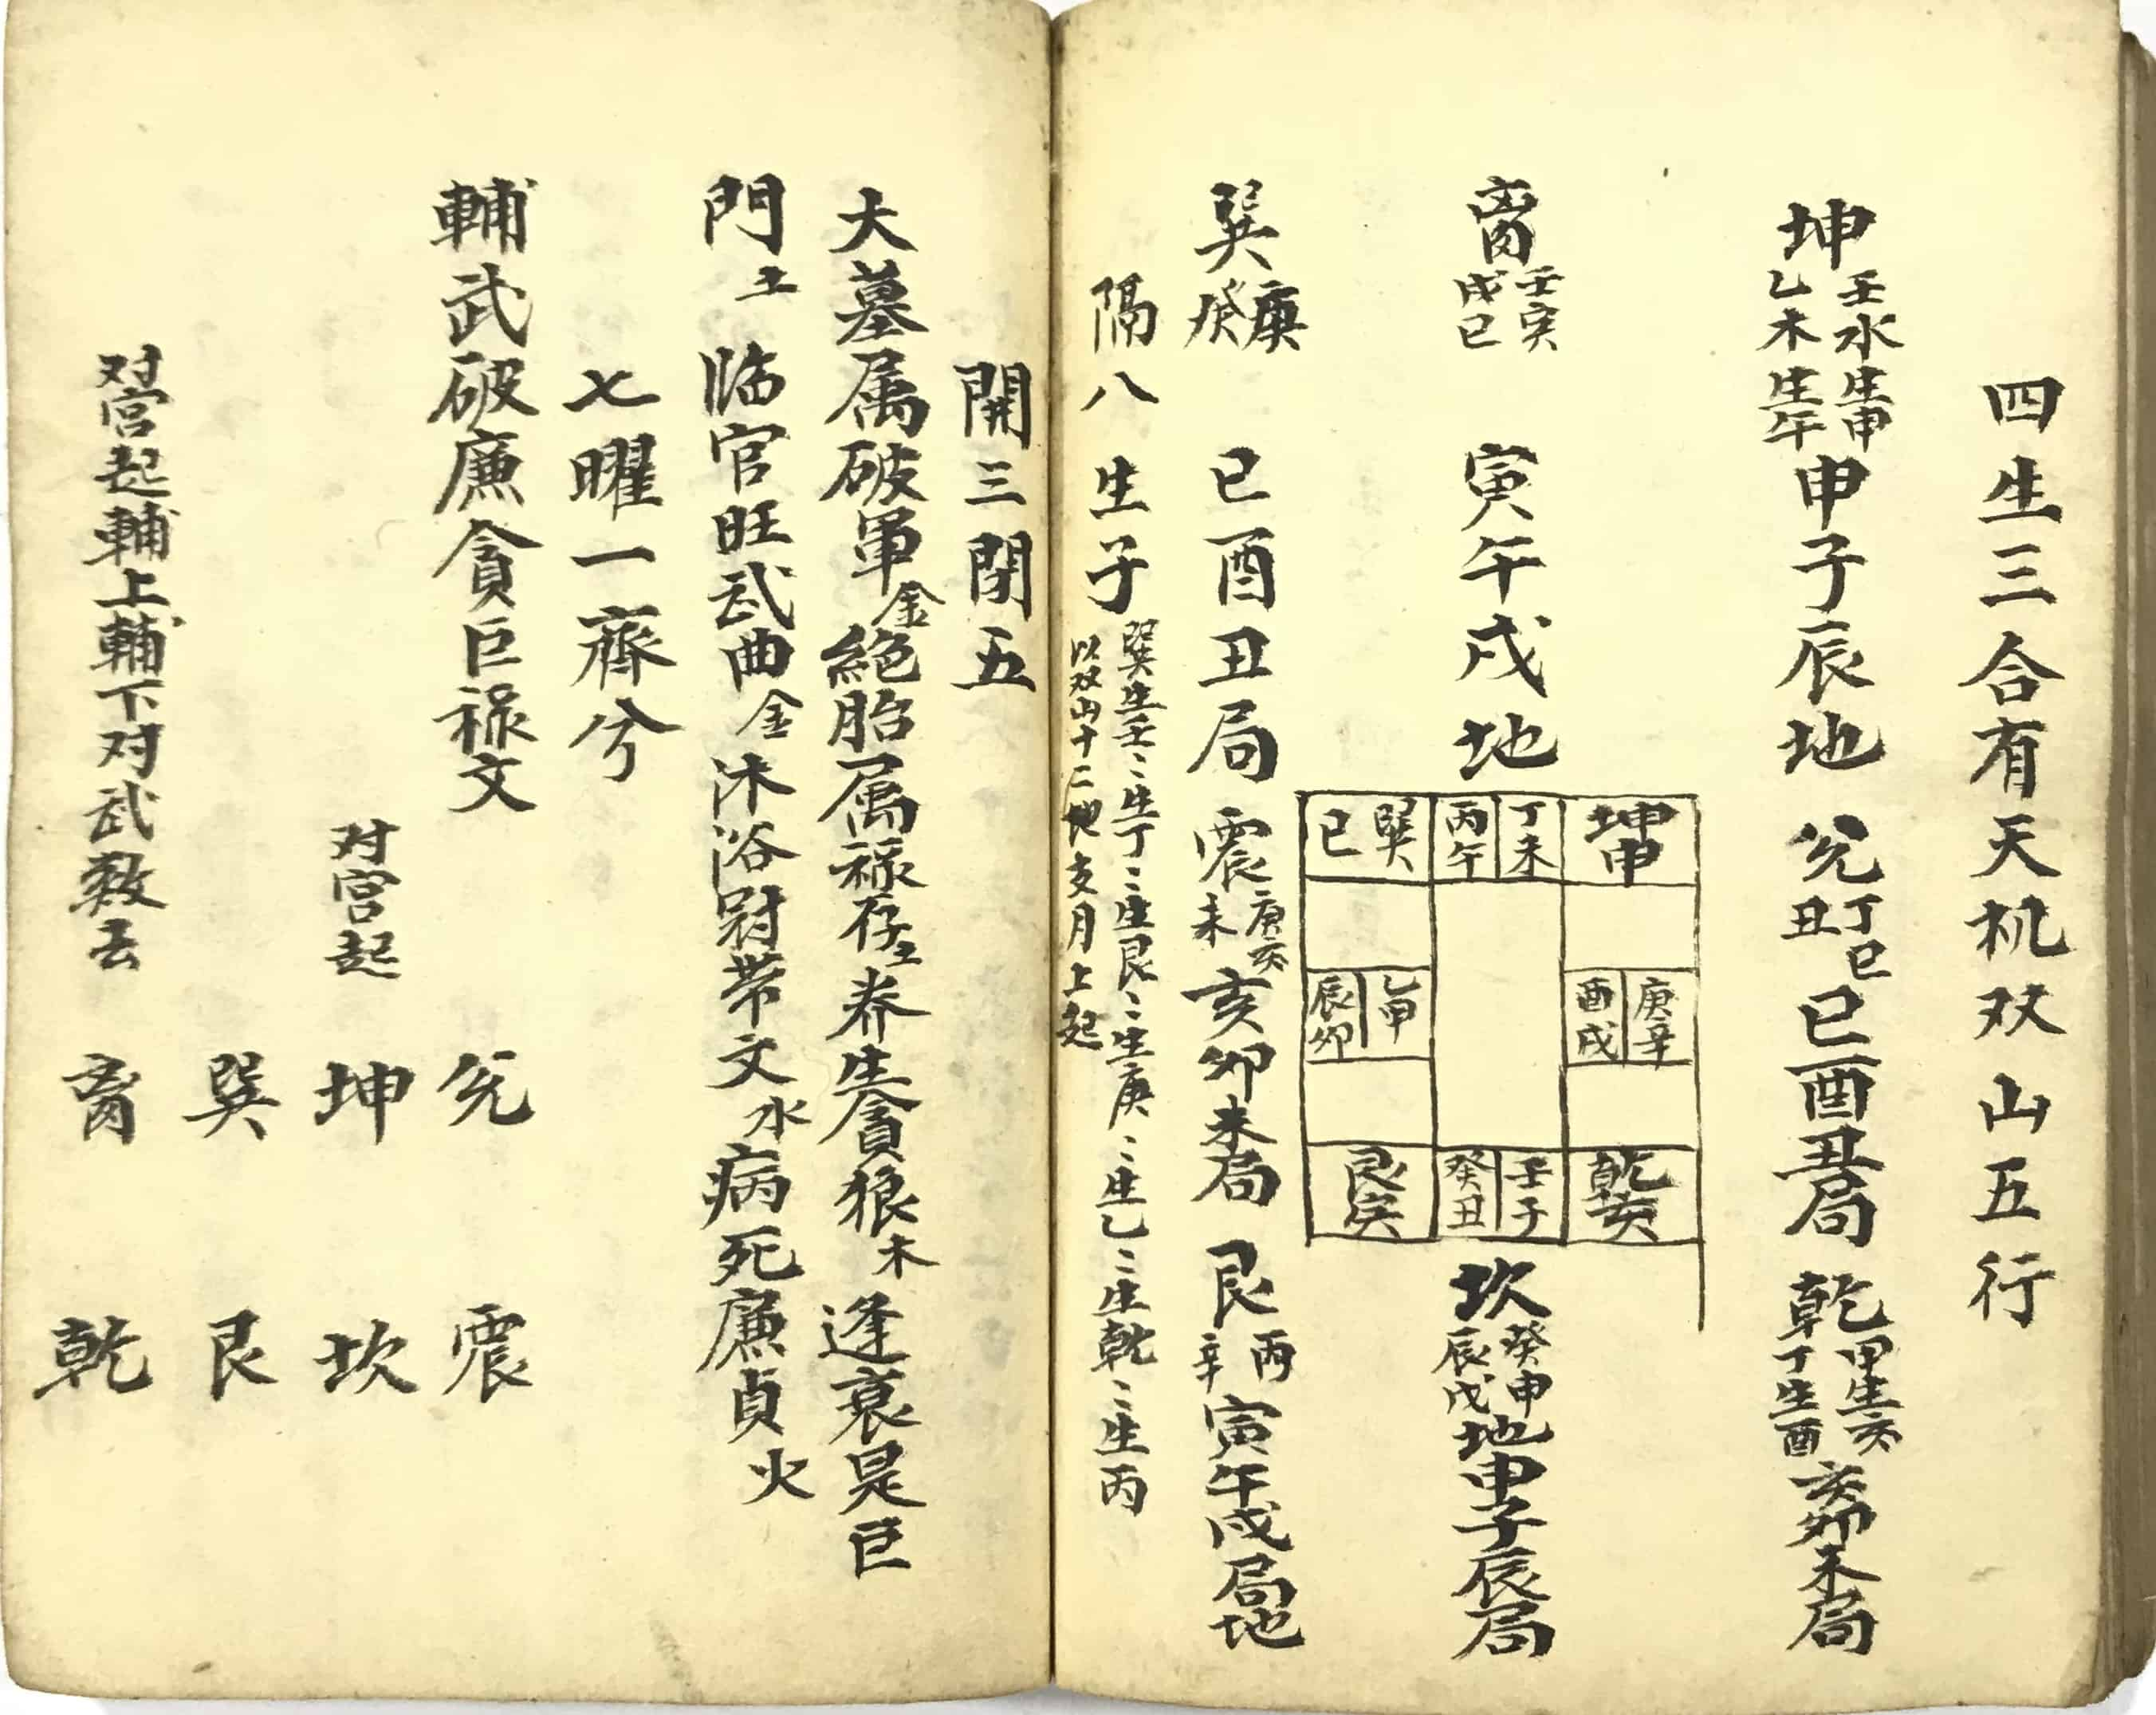 四生三合有天机双山五行
坤
壬水生申
乙木生午
申子辰地
兑
丁巳
丑
巳酉丑局
乾
甲生亥
丁生酉
亥卯未局
离
壬寅
戌巳
寅午戌地
坎
癸申
辰戊
地申子辰局
巽
庚
癸
巳酉丑局
震
庚亥
未
亥卯未局
艮
丙
辛
寅午戌局地
巽巳
丁未
丙午
坤申
乙甲
辰卯
庚辛
酉戌
艮寅
壬子
癸丑
乾亥
隔八生子
巽生壬〻生丁〻生艮〻生庚〻生乙〻生乾〻生丙
以双山十二地支月上起
開三閉五
大墓属破軍金絕胎属祿存土养生貪狼木逢衰是巨
門土临官旺武曲金沐浴冠带文水病死廉貞火
七曜一齊兮
輔武破廉貪巨祿文
兑 震
对宫起
坤 坎
巽 艮
对宫起輔上輔下对武数去
离 乾